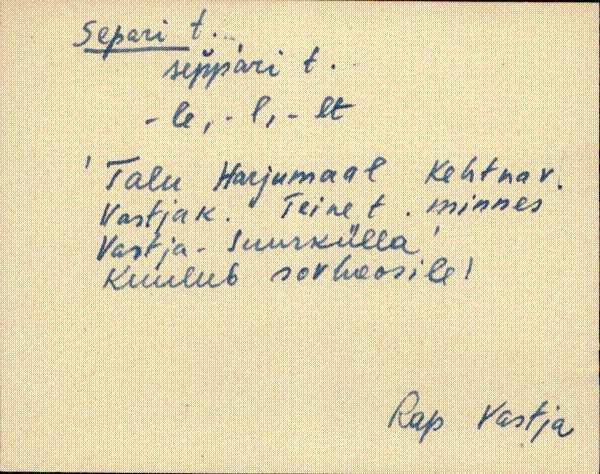 Separi t.
seppäri t.
-le, -l, -lt
'Talu Harjumaal Kehtnav.
Vastjak. Teine t. minnes
Vastja-Suurkülla'
Kuulub sovhoosile!
Rap Vastja